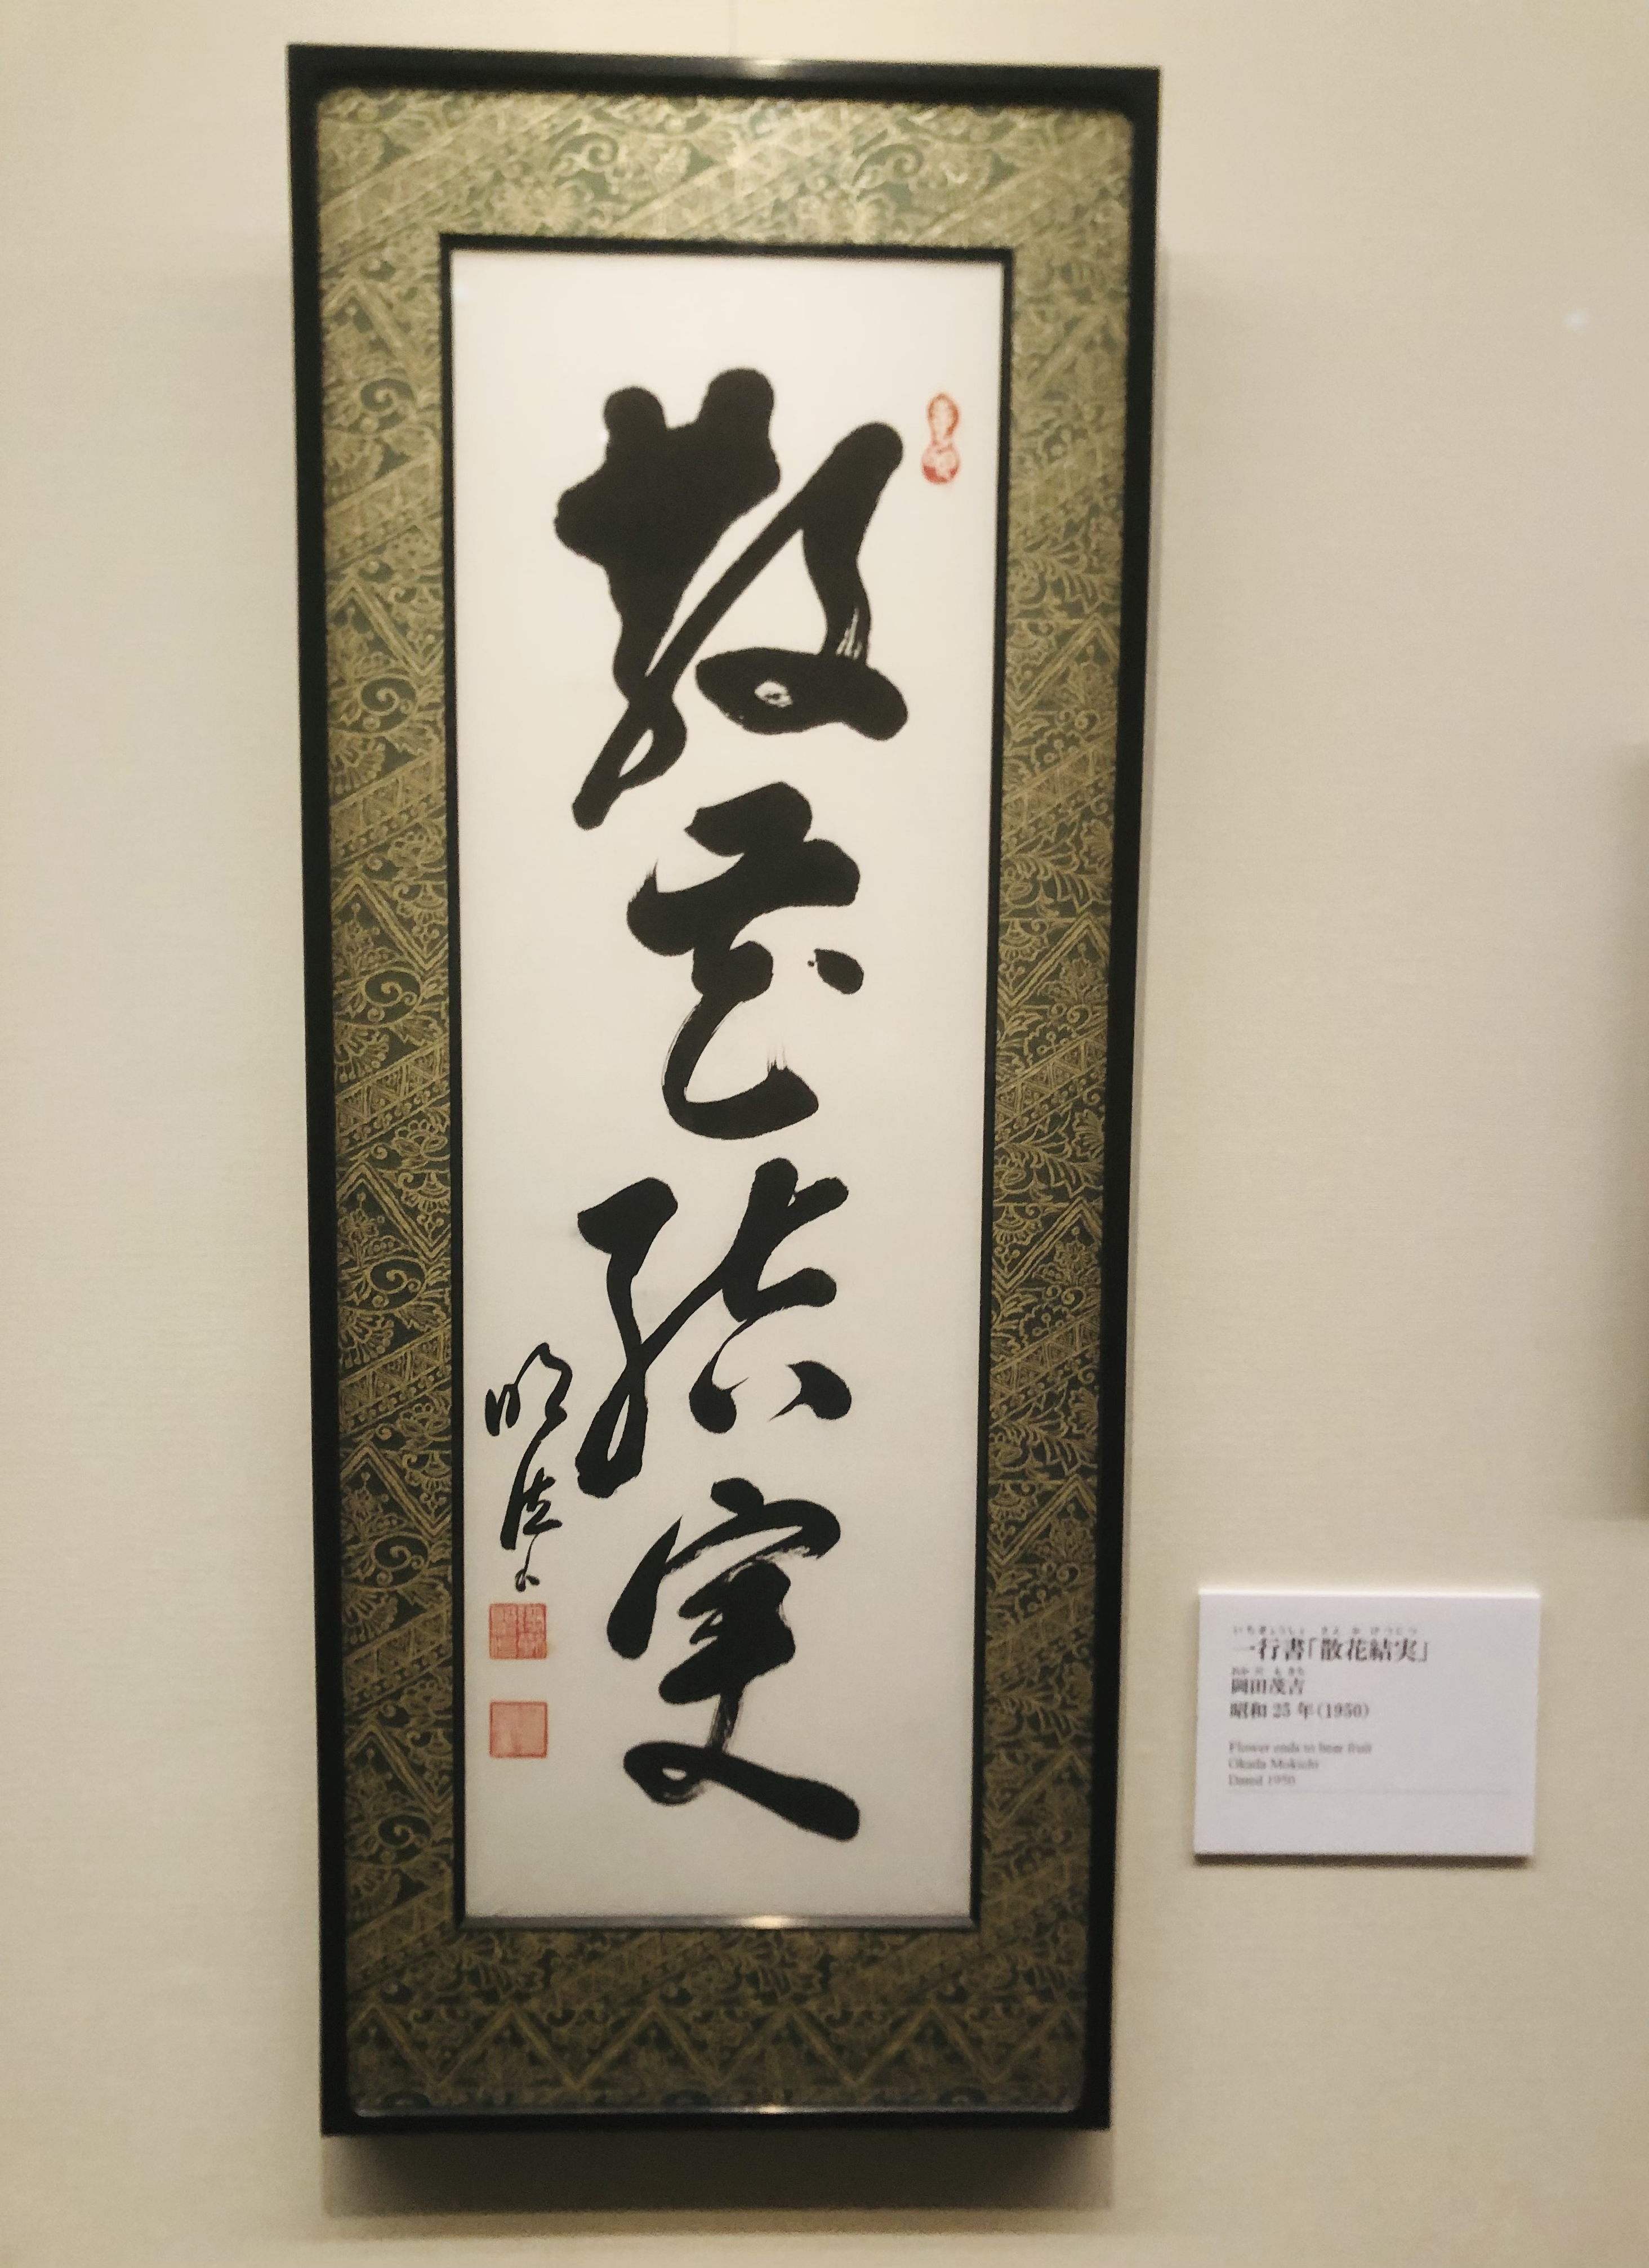 散花結実
明浩
いちぎょうしょ さん か けつじつ
一行書「散花結実」
おか だ も きち
岡田茂吉
昭和 25 年（1950）
Flower ends to bear fruit
Okada Mokichi
Dated 1950